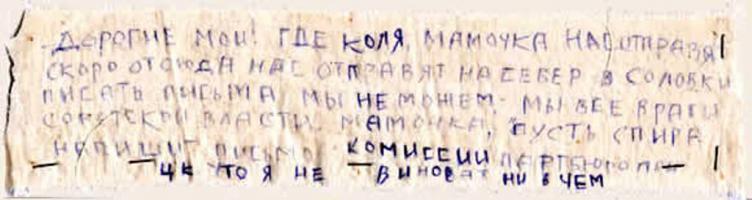 ДОРОГИЕ МОИ! ГДЕ КОЛЯ, МАМОЧКА НАС ОТПРАВЯ
СКОРО ОТСЮДА НАС ОТПРАВЯТ НА СЕБЕР В СОЛОВКИ
ПИСАТЬ ПИСЬМА МЫ НЕ МОЖЕМ. МЫ ВСЕ ВРАГИ
СОВЕТСКОЙ ВЛАСТИ. МАМОЧКА, ПУСТЬ СПИРА
НАПИШИТ ПИСЬМО КОМИССИИ
ЦК ТО Я НЕ ВИНОВАТ НИ В ЧЕМ